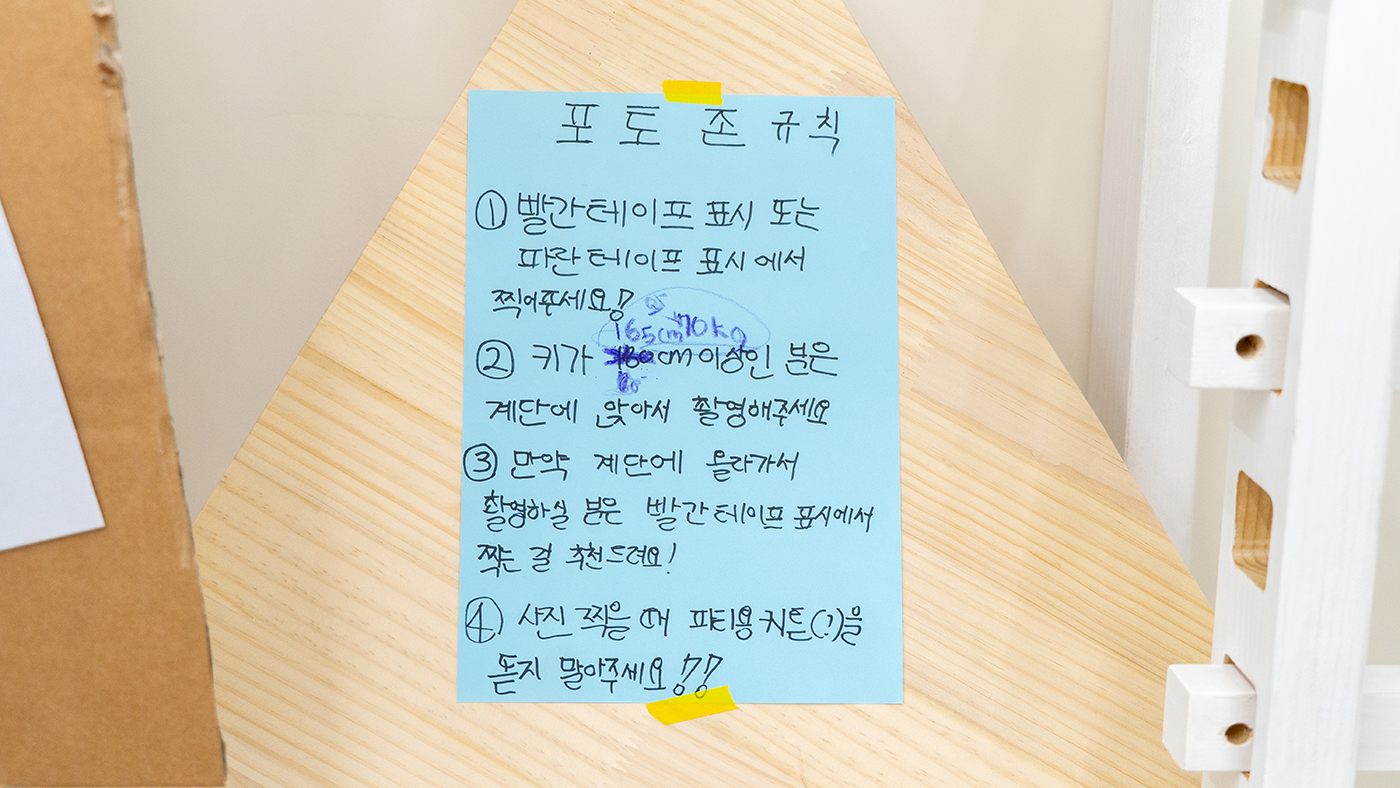 포토존 규칙
① 빨간테이프 표시 또는
파란테이프 표시에서
찍어주세요!
165cm 70kg
② 키가 cm이상인 분은
계단에 앉아서 촬영해주세요
③ 만약 계단에 올라가서
촬영하실 분은 빨간테이프 표시에서
찍는 걸 추천드려요!
④ 사진 찍을 때 파티용커튼(?)을
뜯지 말아주세요!!